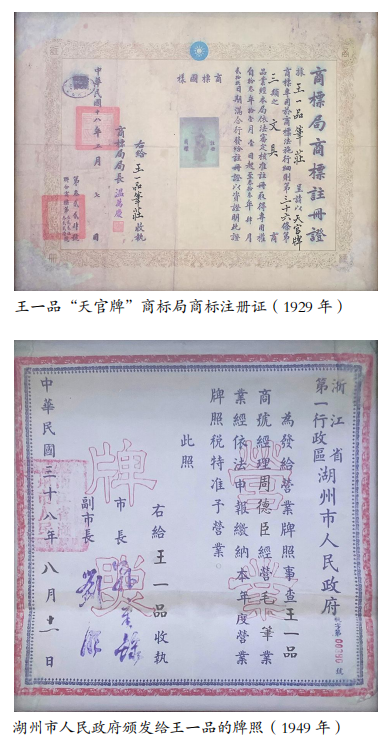 商標局商標註冊證
據王一品筆莊呈請以天官牌
商標專用於商標法施行細則第三十六條第
三類之文具商
品業經本局依法審定核准註冊取得專用權
期滿合行發給註冊證以資證明此證
商標圖樣
右給王一品筆莊收執
商標局局長
中華民國十八年三月 日
王一品“天官牌”商标局商标注册证（1929 年）
浙江省
第一行政區湖州市人民政府
字第 號
為發給營業牌照事查王一品
商號經理周德臣經營毛筆業
業經依法申報繳納本年度營業
牌照稅特准予營業。
此照
營業
牌照
右給王一品收執
市長
副市長
中華民國三十八年八月十一日
湖州市人民政府颁发给王一品的牌照（1949 年）